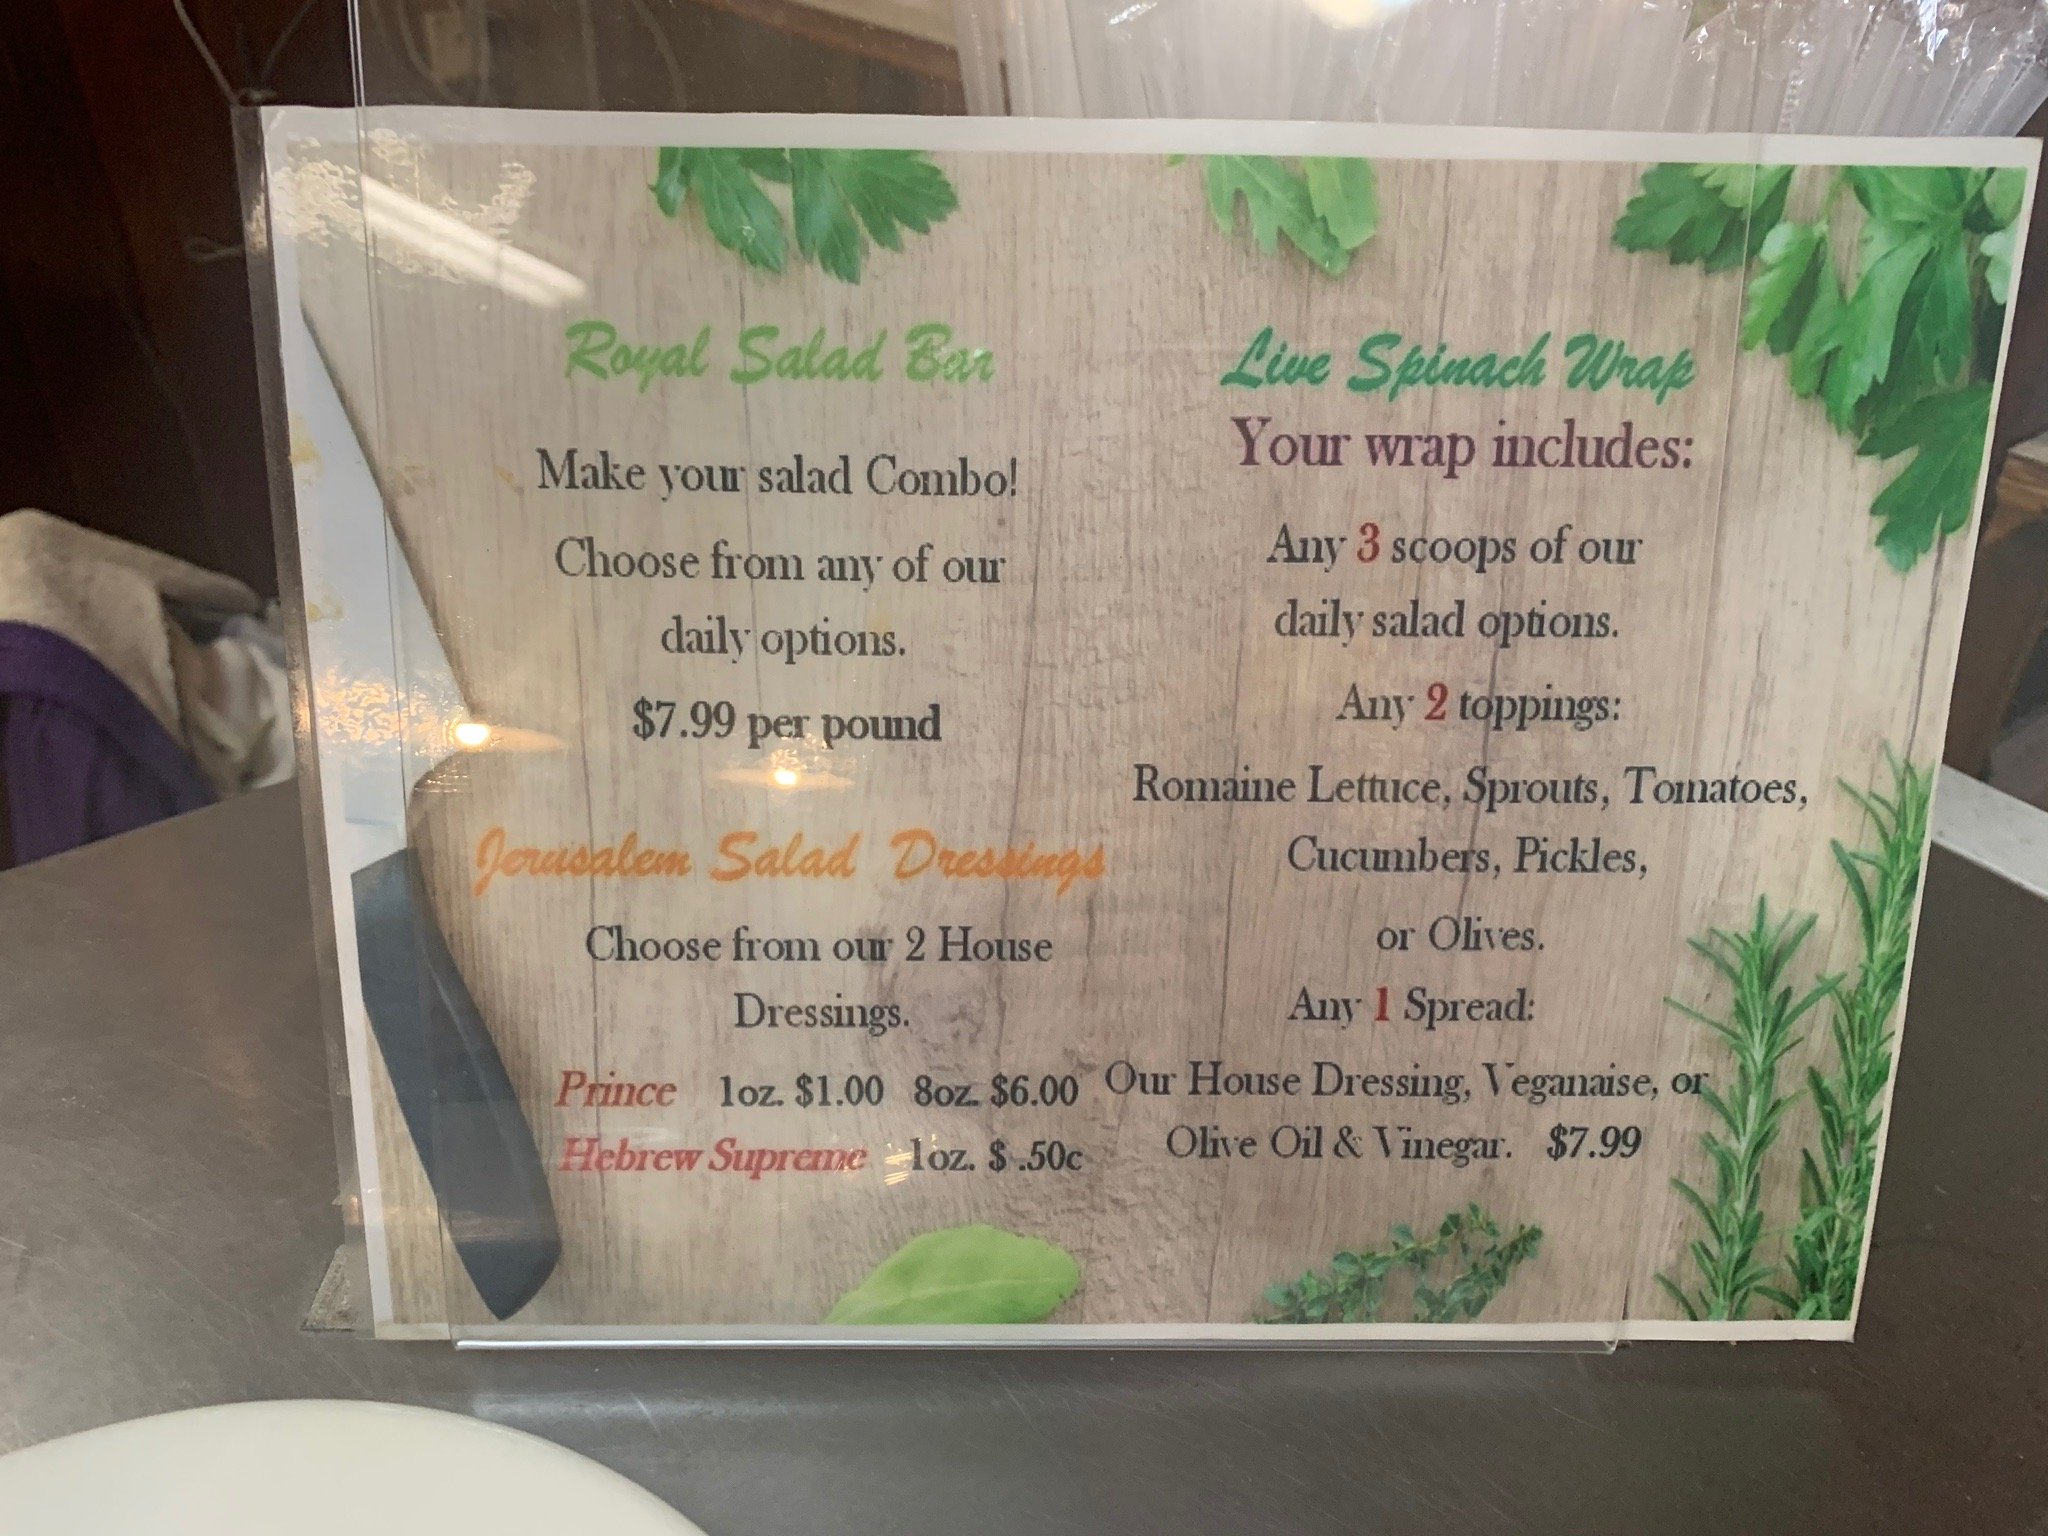 Royal Salad Bar
Make your salad Combo!
Choose from any of our
daily options.
$7.99 per pound
Jerusalem Salad Dressings
Choose from our 2 House
Dressings.
Prince 1oz. $1.00 8oz. $6.00
Hebrew Supreme 1oz. $ .50c
Live Spinach Wrap
Your wrap includes:
Any 3 scoops of our
daily salad options.
Any 2 toppings:
Romaine Lettuce, Sprouts, Tomatoes,
Cucumbers, Pickles,
or Olives.
Any 1 Spread:
Our House Dressing, Veganaise, or
Olive Oil & Vinegar. $7.99